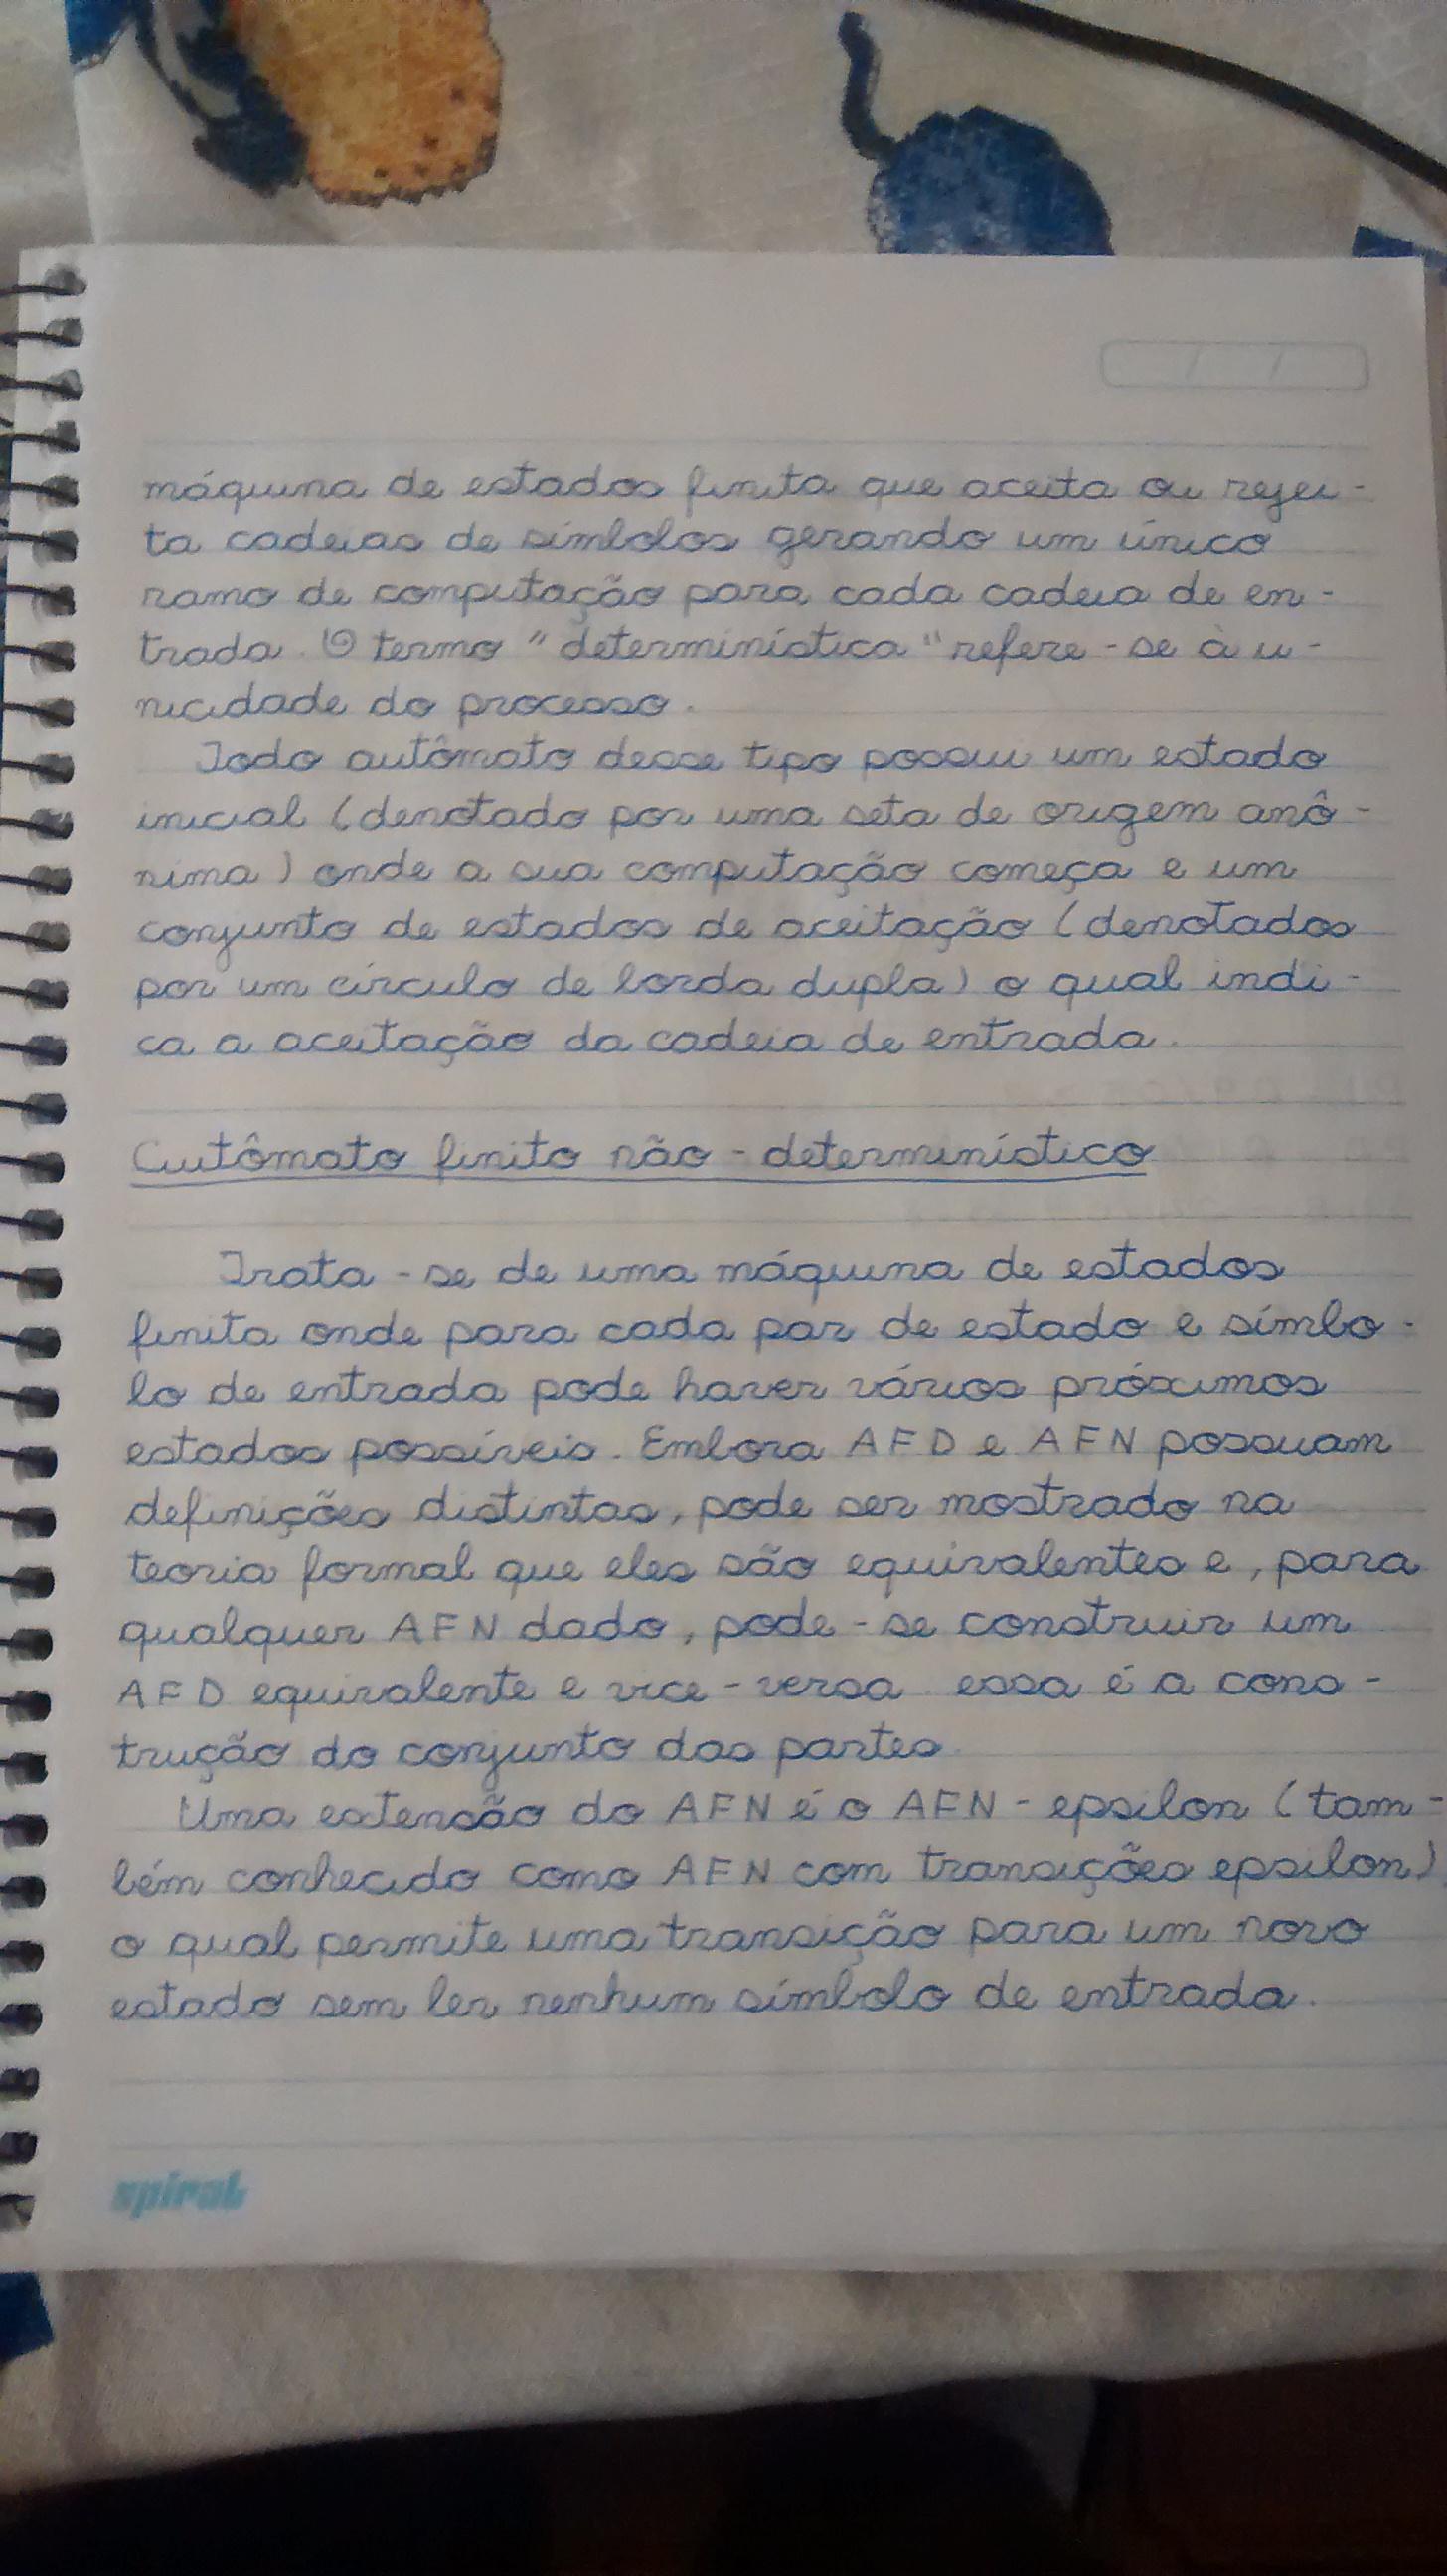 máquina de estados finita que aceita ou rejei-
ta cadeias de símbolos gerando um único
ramo de computação para cada cadeia de en-
trada. O termo "determinística" refere-se à u-
nicidade do processo.
Todo autômato desse tipo possui um estado
inicial (denotado por uma seta de origem anô-
nima) onde a sua computação começa e um
conjunto de estados de aceitação (denotados
por um círculo de borda dupla) o qual indi-
ca a aceitação da cadeia de entrada.
Autômato finito não-determinístico
Trata-se de uma máquina de estados
finita onde para cada par de estado e símbo-
lo de entrada pode haver vários próximos
estados possíveis. Embora AFD e AFN possuam
definições distintas, pode ser mostrado na
teoria formal que eles são equivalentes e, para
qualquer AFN dado, pode-se construir um
AFD equivalente e vice-versa essa é a cons-
trução do conjunto das partes.
Uma extensão do AFN é o AFN-epsilon (tam-
bém conhecido como AFN com transições epsilon)
o qual permite uma transição para um novo
estado sem ler nenhum símbolo de entrada.
spiral